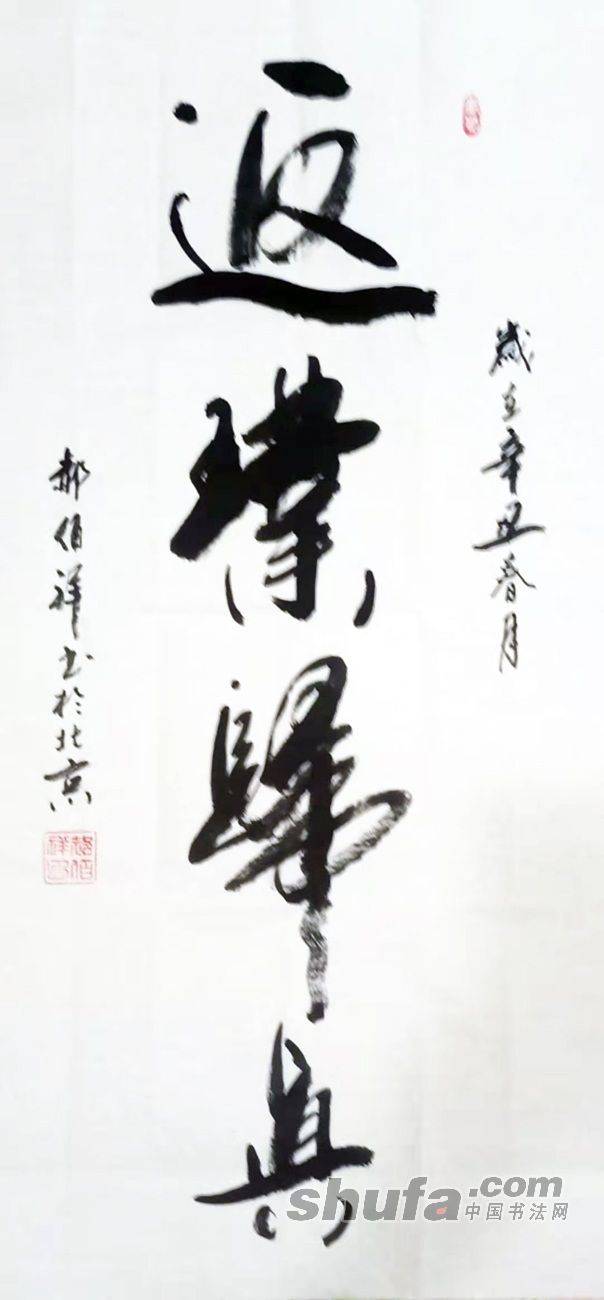 歲在辛丑春月
返璞歸真
郝伯祥书於北京
郝伯祥印
shufa.com
中国书法网